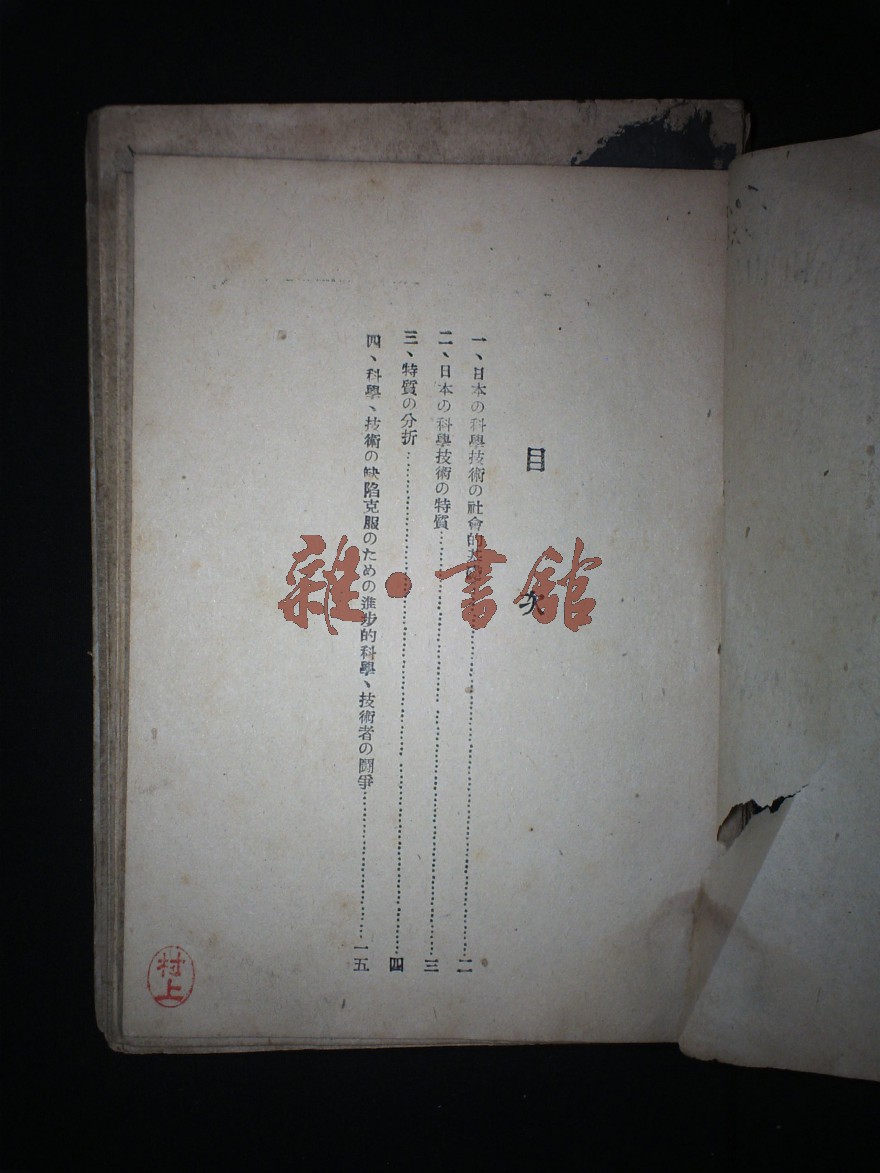 目次
一、日本の科學技術の社會的基……二
二、日本の科學技術の特質……三
三、特質の分折……四
四、科學、技術の缺陷克服のための進步的科學、技術者の鬪爭……一五
村上
雜·書館